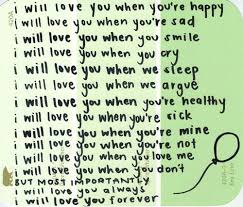 i will love you when you're happy
i will love you when you're sad
i will love you when you smile
i will love you when you cry
i will love you when we sleep
i will love you when we argue
i will love you when you're healthy
i will love you when you're sick
i will love you when you're mine
i will love you when you're not
i will love you when you love me
i will love you when you don't
BUT MOST IMPORTANTLY
i will love you always
i will love you forever